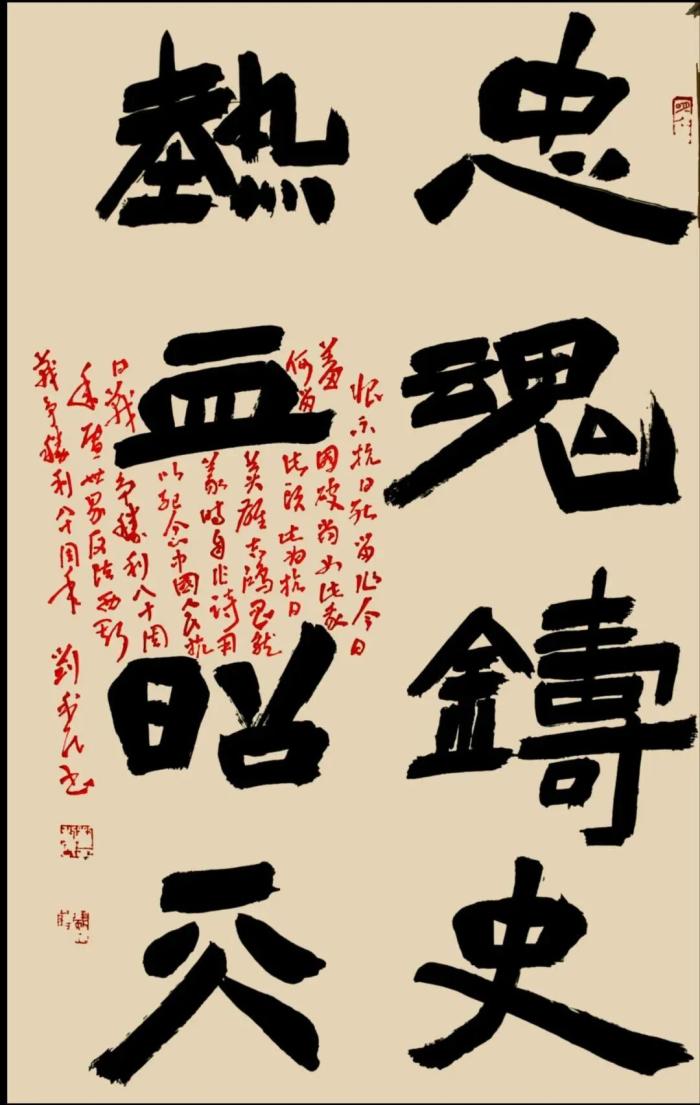 忠魂鑄史
熱血昭天
恨不抗日死留作今日
羞國破尚如此我
何惜此頭此為抗日
英雄吉鴻昌就
義時自作詩用
以紀念中國人民抗
日戰爭勝利八十周
年暨世界反法西斯
戰爭勝利八十周年 劉